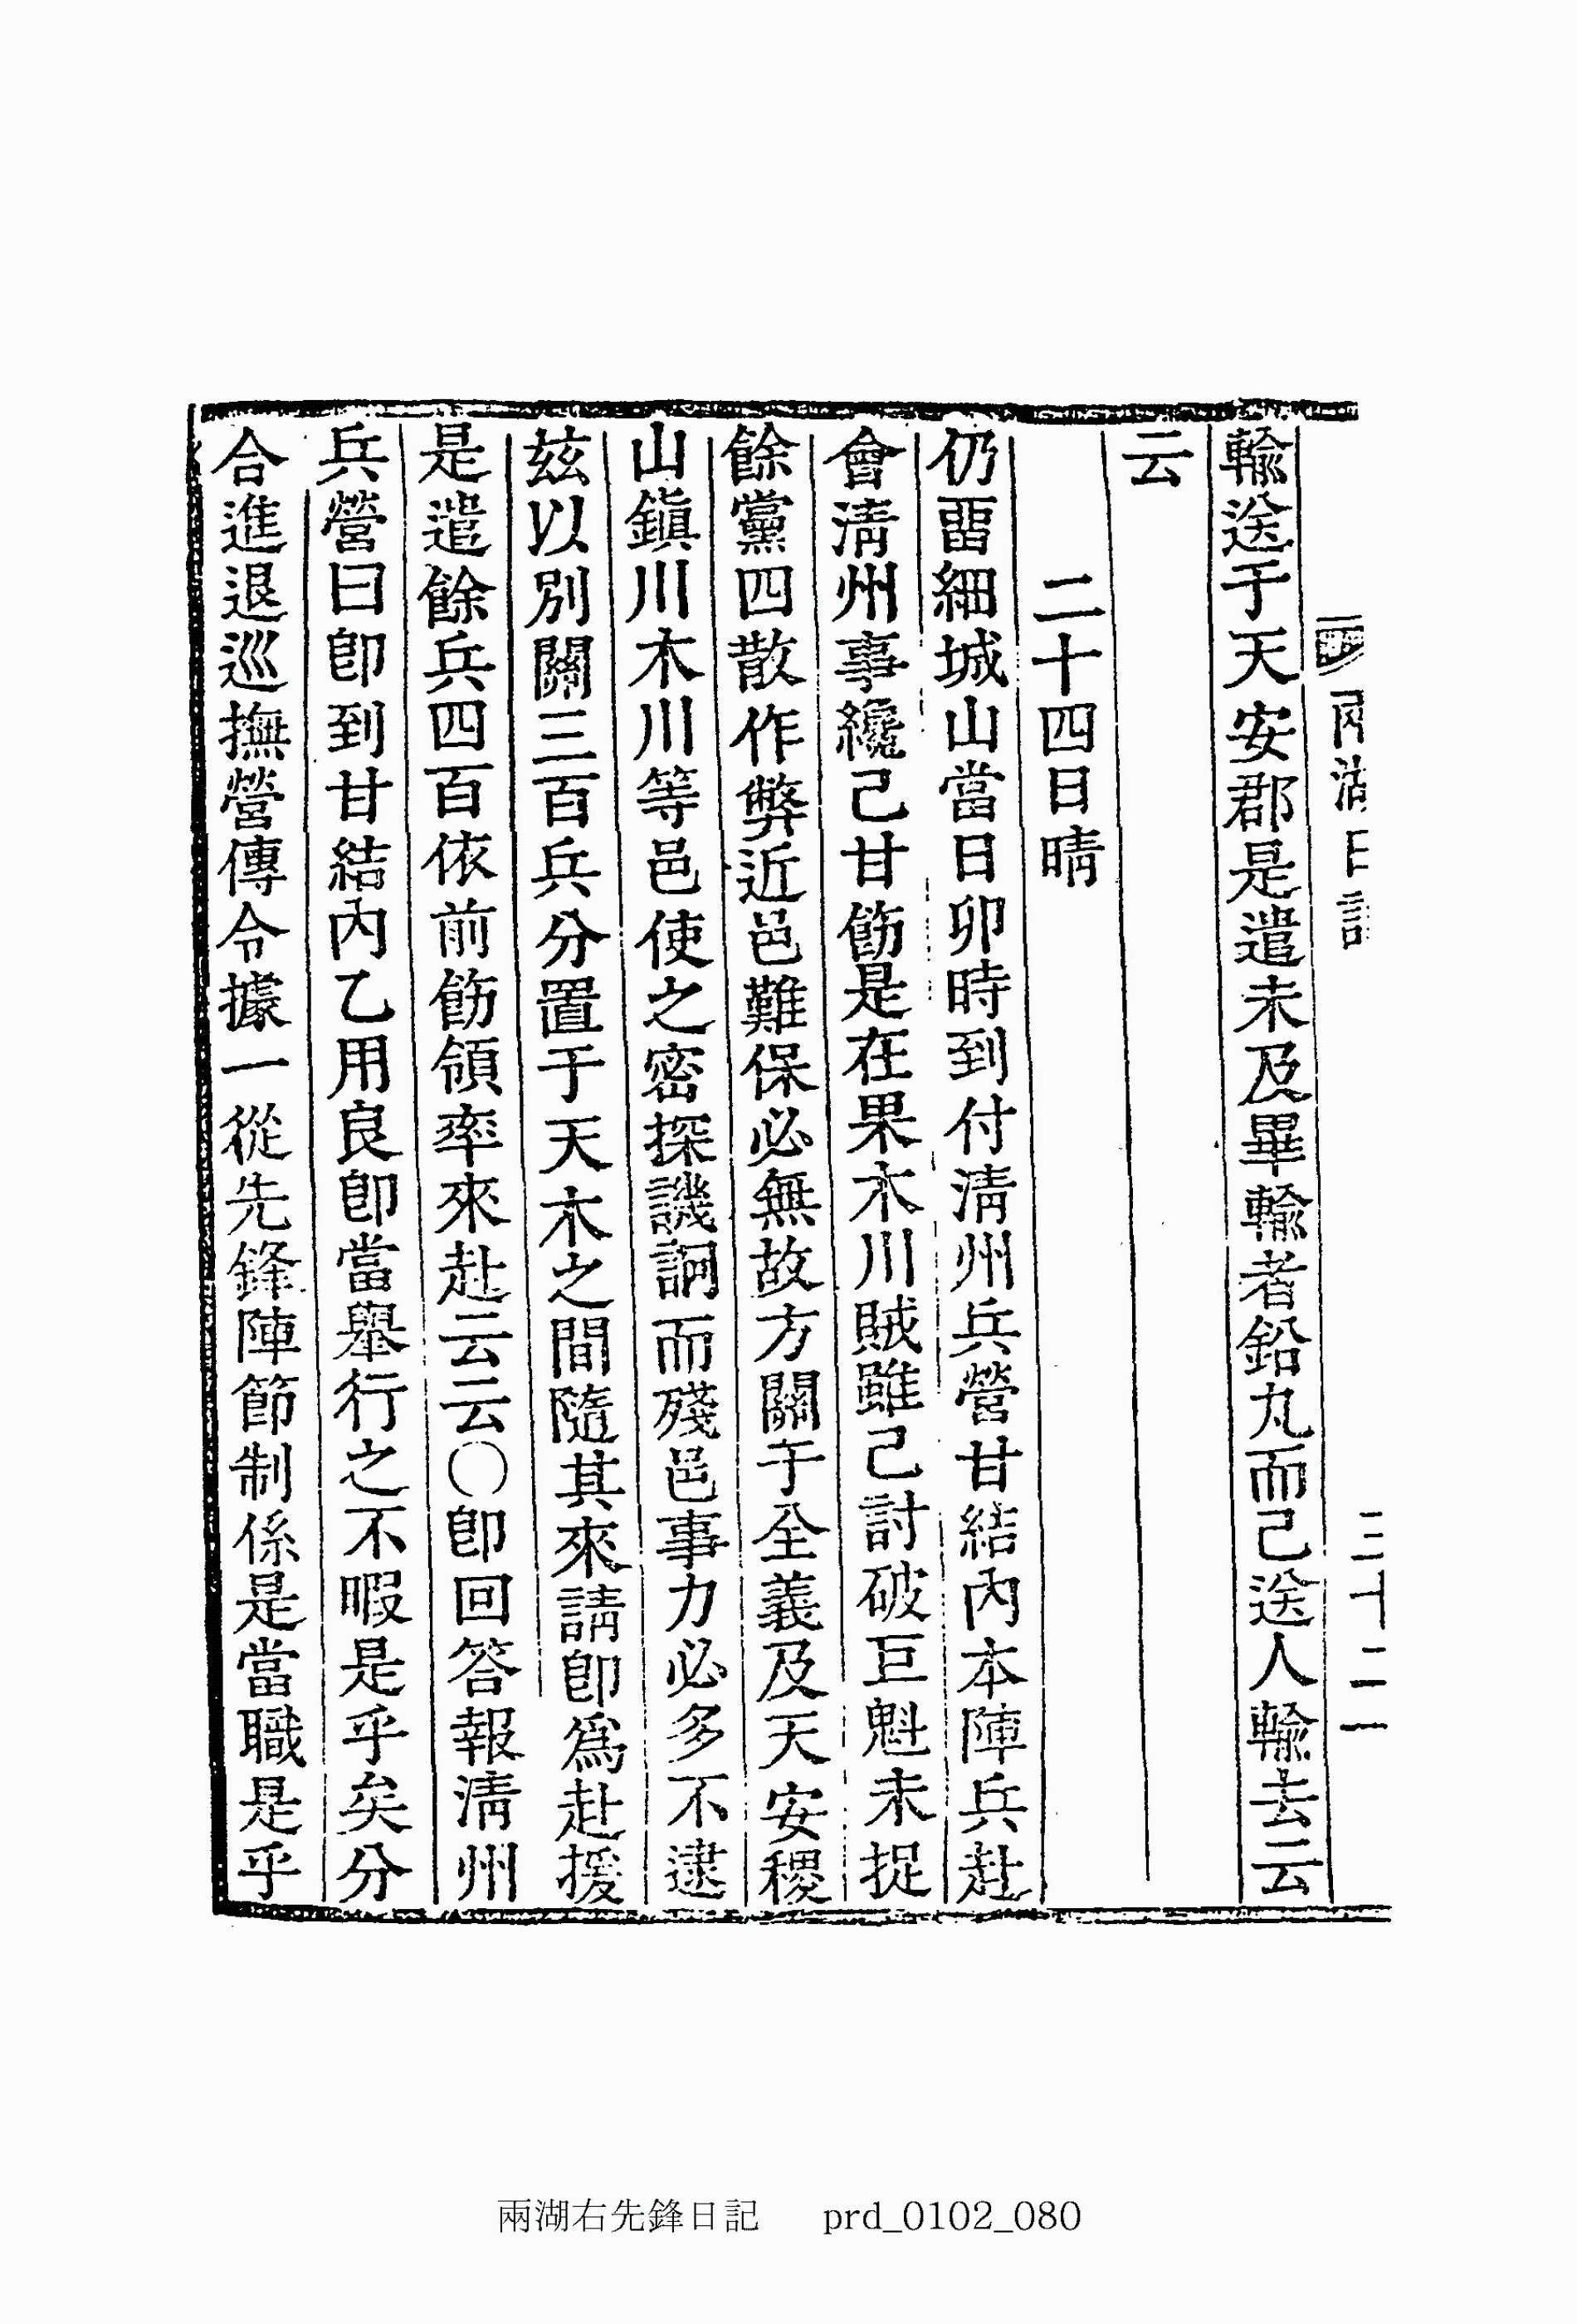 兩湖日記
三十二
輸送于天安郡是遣未及畢輸者鉛丸而己送人輸去云
云
二十四日晴
仍畱細城山當日卯時到付淸州兵營甘結內本陣兵赴
會淸州事纔己甘飭是在果木川賊雖己討破巨魁未捉
餘黨四散作弊近邑難保必無故方關于全義及天安稷
山鎭川木川等邑使之密探譏詗而殘邑事力必多不逮
玆以別關三百兵分置于天木之間隨其來請卽爲赴援
是遣餘兵四百依前飭領率來赴云云〇卽回答報淸州
兵營曰卽到甘結內乙用良卽當擧行之不暇是乎矣分
合進退巡撫營傳令據一從先鋒陣節制係是當職是乎
兩湖右先鋒日記 prd_0102_080